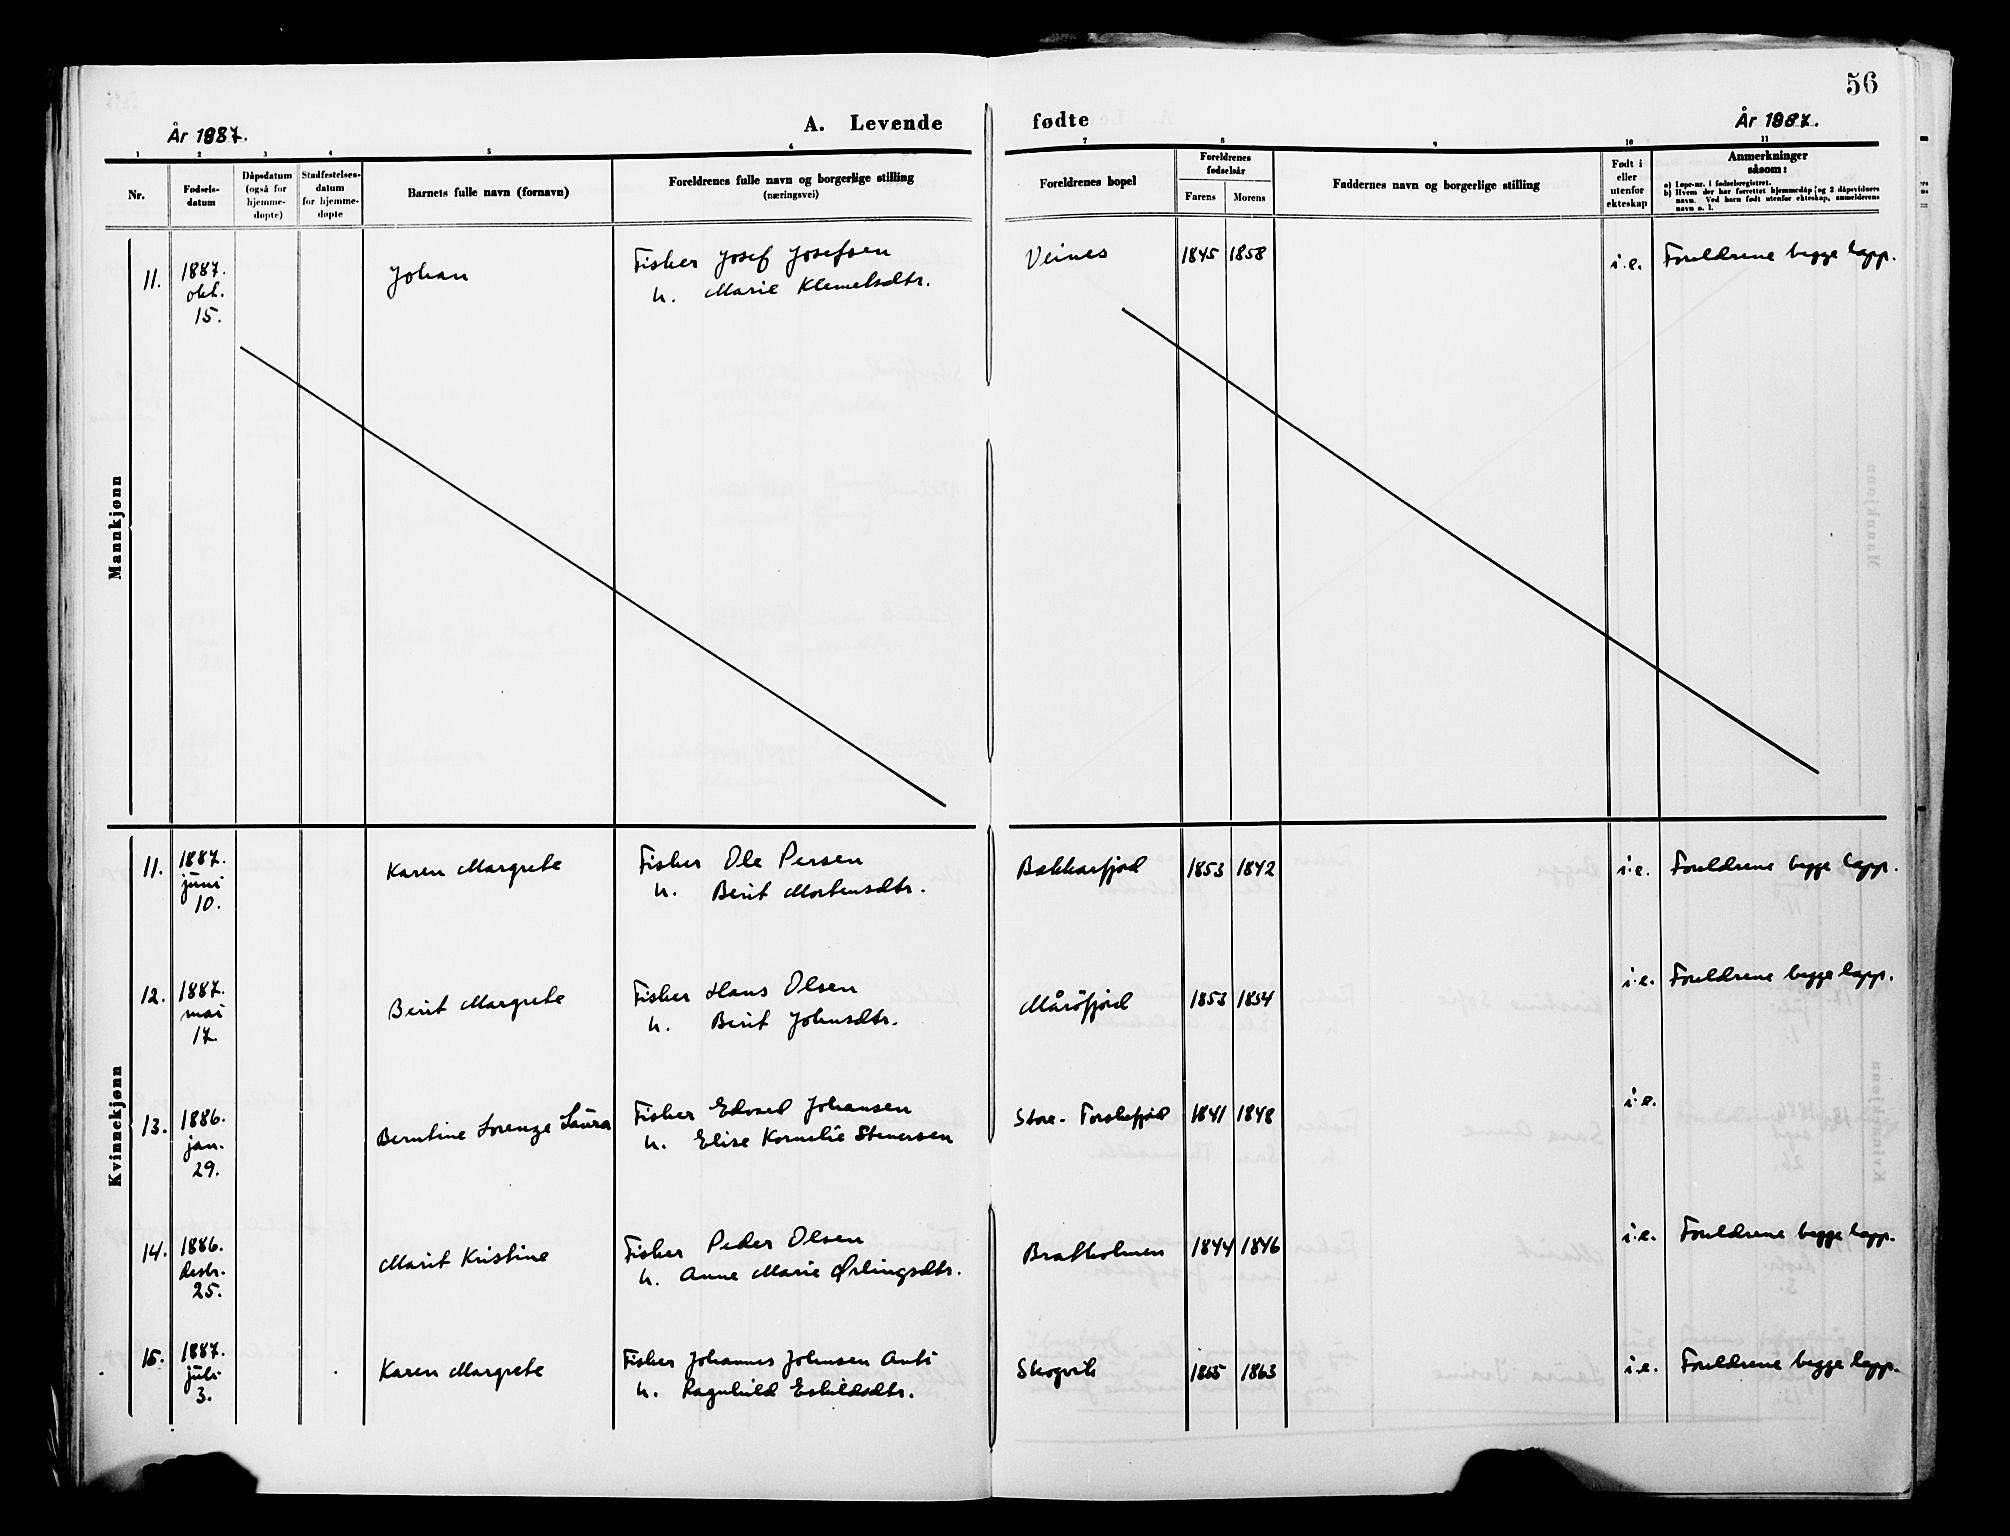 56
År 1887.
A. Levende
fødte
År 1887.
1 2 3 4 5 6 7 8 9 10 11
Nr.
Fødsels-
datum
Dåpsdatum
(også for
hjemme-
døpte)
Stadfestelses-
datum
for hjemme-
døpte
Barnets fulle navn (fornavn)
Foreldrenes fulle navn og borgerlige stilling
(næringsvei)
Foreldrenes bopel
Foreldrenes
fødselsår
Farens Morens
Faddernes navn og borgerlige stilling
Født i
eller
utenfor
ekteskap
Anmerkninger
såsom:
a) Løpe-nr. i fødselsregistret.
b) Hvem der har forrettet hjemmedåp og 2 dåpsvidners
navn. Ved barn født utenfor ekteskap, anmelderens
navn o. l.
Mannkjønn
11. 1887. okt. 15. Johan Fisker Josef Josefsen Veines 1845 1858 i.e. Foreldrene begge lapp.
h. Marie Klemetsdtr.
Kvinnekjønn
11. 1887. juni 10. Karen Margrete Fisker Ole Persen Bakkarfjord 1853 1842 i.e. Foreldrene begge lapp.
h. Berit Mortensdtr.
12. 1887. mai 17. Berit Margrete Fisker Hans Olsen Mårøfjord 1853 1854 i.e. Foreldrene begge lapp.
h. Berit Johnsdtr.
13. 1886. jan. 29. Berntine Lorenze Laura Fisker Edvard Johansen Store-Torskefjord 1841 1848 i.e.
h. Elise Kornelie Stenersen
14. 1886. desbr. 25. Marit Kristine Fisker Peder Olsen Bratholmen 1844 1846 i.e. Foreldrene begge lapp.
h. Anne Marie Ørlingsdtr.
15. 1887. juli 3. Karen Margrete Fisker Johannes Johnsen Anti Skogvik 1865 1863 i.e. Foreldrene begge lapp.
h. Ragnhild Eskildsdtr.